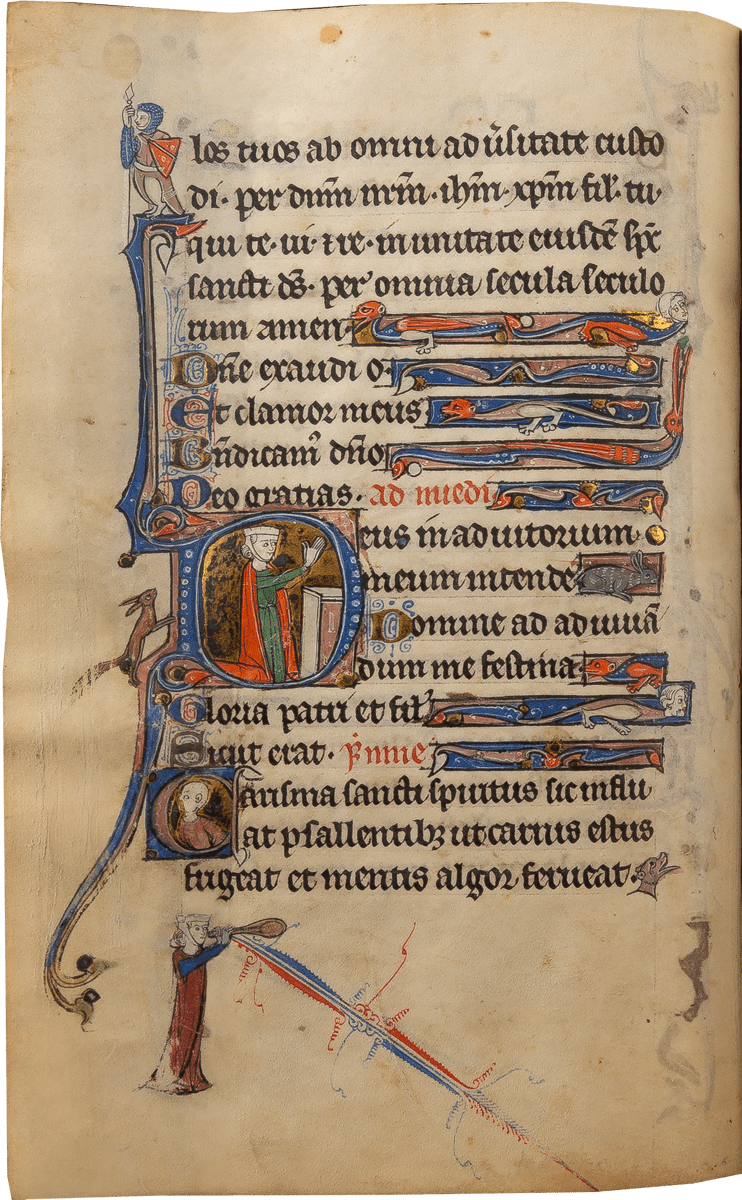 los tuos ab omni aduͥsitate custo
di· per dnm̄ nrm̄· ihm̄· xp̄m filꝭ tu·
qui te· ui· ⁊ re· in unitate eiusdē sp̄c
sancti ds̄· per omnia secula seculo
rum amen
Dn̄e exaudi o
Et clamor meus
Bn̄dicamꝰ dn̄o
Deo gratias· ad miedi
Deus in adiutorium·
meum intende
Domine ad adiuuā
dum me festina
Gloria patri et filꝭ
Sicut erat· ꝑ̄nnie
Carisma sancti spiritus sic influ
at psallentibꝫ ut carnis estus
fugeat et mentis algor ferueat·